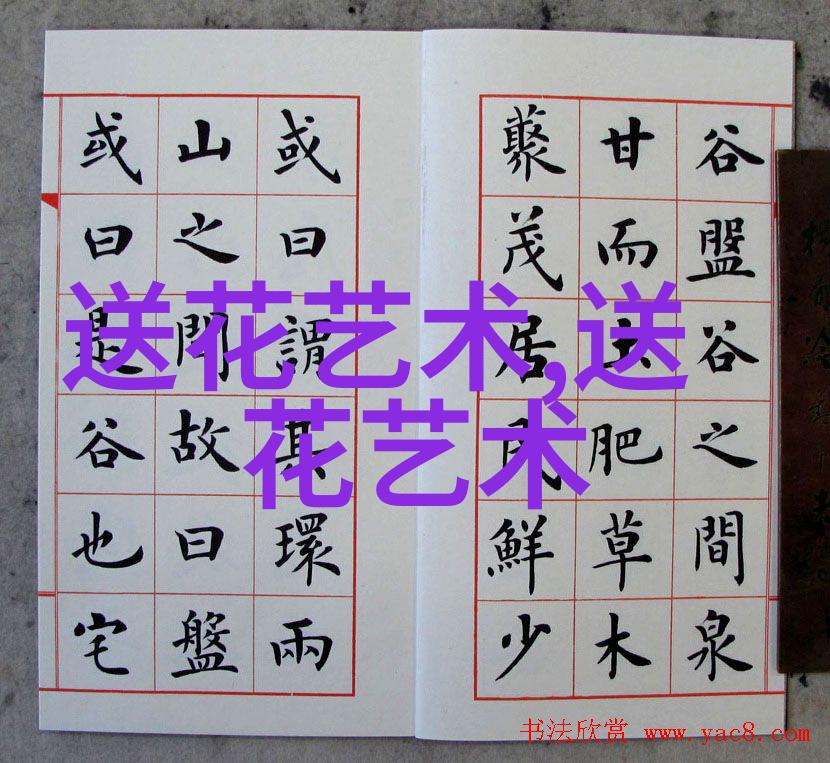 谷盤谷之間泉
甘而土肥草木
藂茂居民鮮少
或曰謂其環兩
山之間故曰盤
或曰是谷也宅
送花艺术,送
花艺术
书法欣赏 www.yac8.com